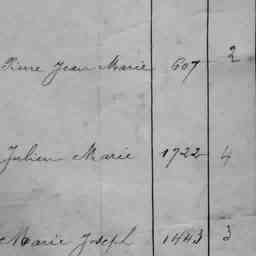 Pierre Jean Marie 607 2
Julien Marie 1722 4
Marie Joseph 1443 3